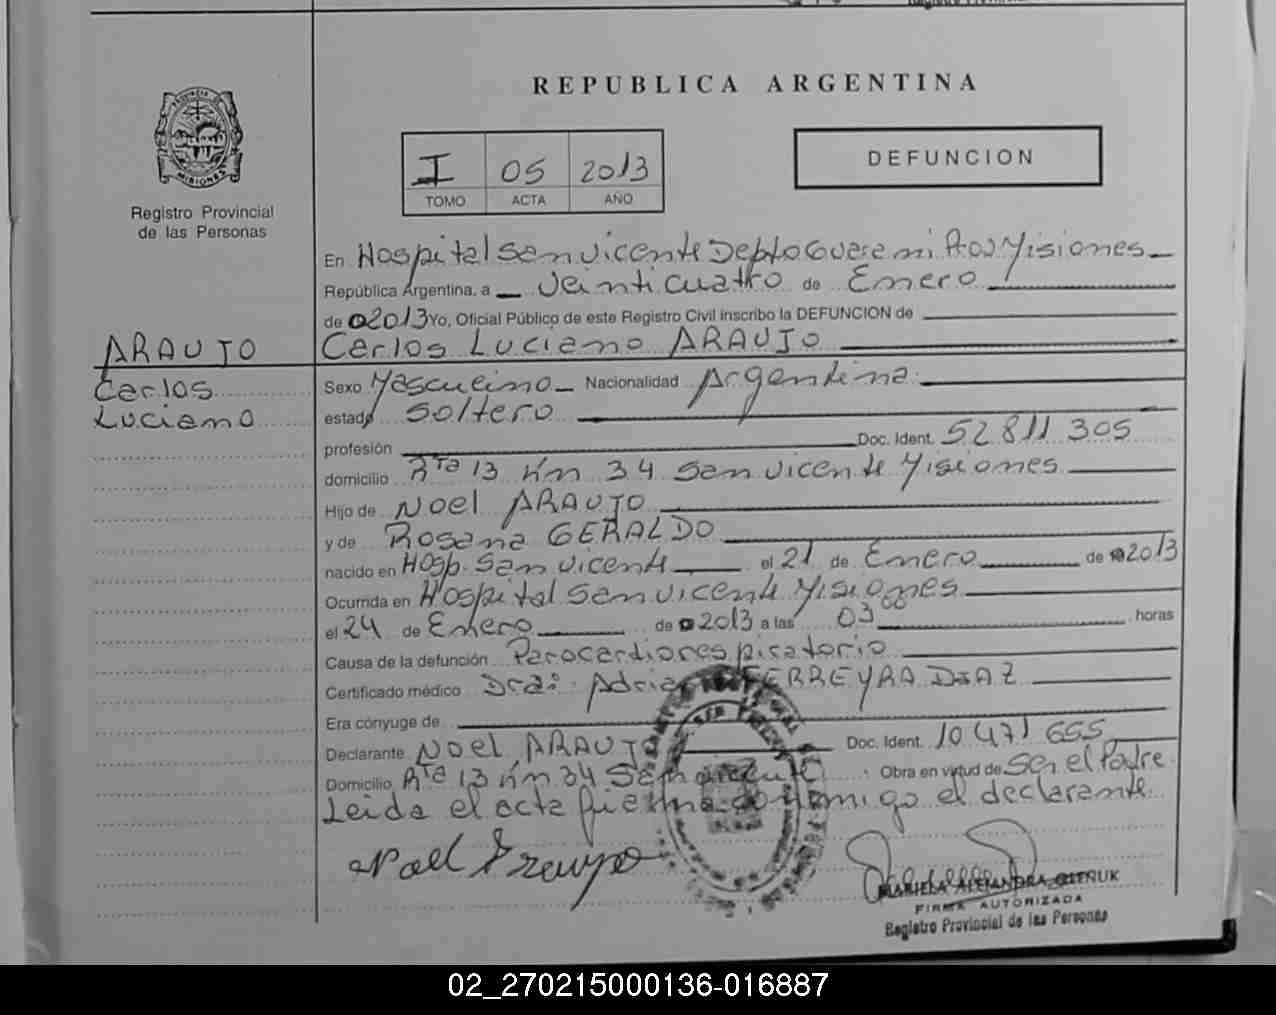 REPUBLICA ARGENTINA
PROVINCIA DE
MISIONES
Registro Provincial
de las Personas
I 05 2013
TOMO ACTA AÑO
DEFUNCION
En Hospital San Vicente Depto Guarani Misiones
República Argentina, a Veinticuatro de Enero
de 2013 Yo, Oficial Público de este Registro Civil inscribo la DEFUNCION de
Carlos Luciano ARAUJO
ARAUJO
Carlos
Luciano
Sexo Masculino Nacionalidad Argentina
estado Soltero
profesión Doc. Ident. 52 811 305
domicilio Rta 13 Km 34 San Vicente Misiones
Hijo de Noel ARAUJO
y de Rosana GERALDO
nacido en Hosp. San Vicente el 21 de Enero de 2013
Ocurrida en Hospital San Vicente Misiones
el 24 de Enero de 2013 a las 03 00 horas
Causa de la defunción Parocardiorespiratorio
Certificado médico Dra: FERREYRA DIAZ
Era cónyuge de
Declarante Noel ARAUJO Doc. Ident. 10 471 655
Domicilio Rta 13 Km 34 San Vicente Obra en virtud de Ser el Padre
Leida el acta firma conmigo el declarante
Noel Araujo
MARIELA ALEJANDRA
FIRMA AUTORIZADA
Registro Provincial de las Personas
02_270215000136-016887